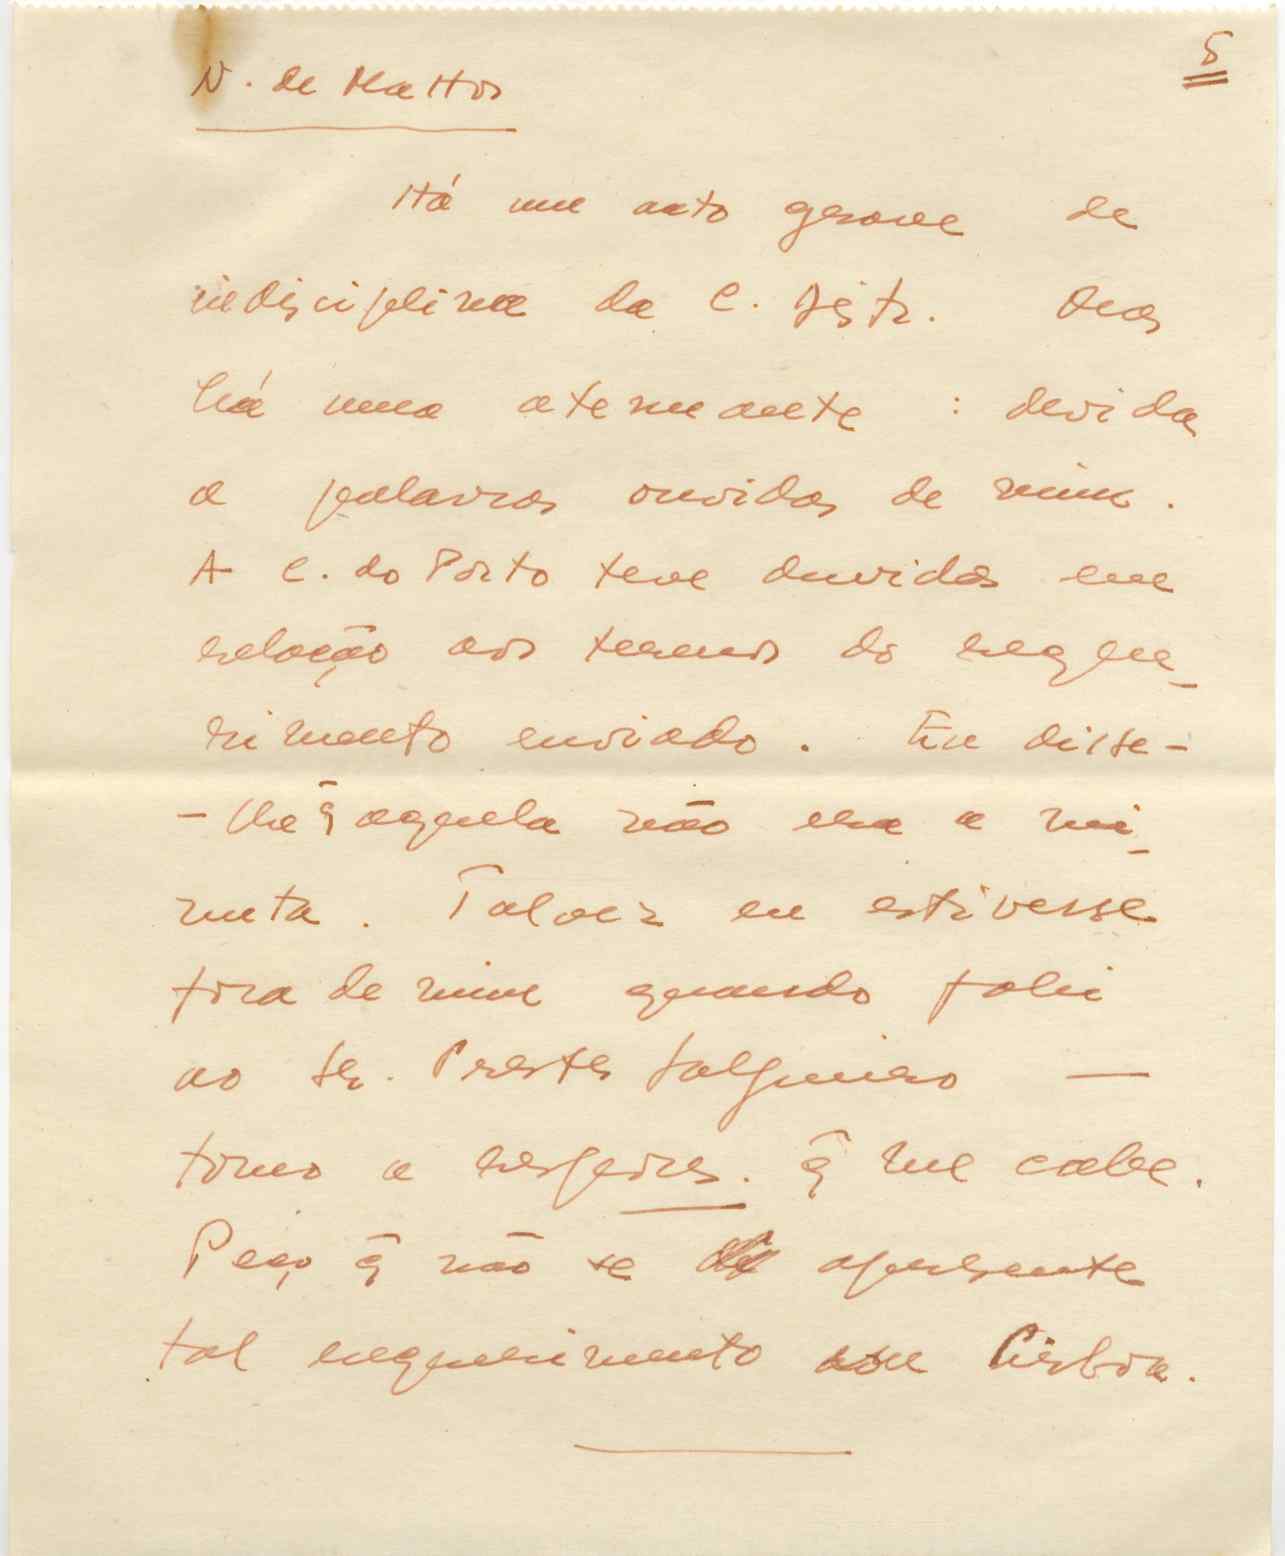 5
N. de Mattos
Há um acto grave de
indisciplina da C. Distr. Mas
há uma atenuante : devida
a palavras ouvidas de mim.
A C. do Porto teve duvidas em
relação aos termos do reque_
rimento enviado. Eu disse-
-lhe q̃ aquela não era a mi_
nuta. Talvez eu estivesse
fora de mim quando falei
ao Sr. Prestes Salgueiro —
tomo a respons. q̃ me cabe.
Peço q̃ não se apresente
tal requerimento em Lisboa.